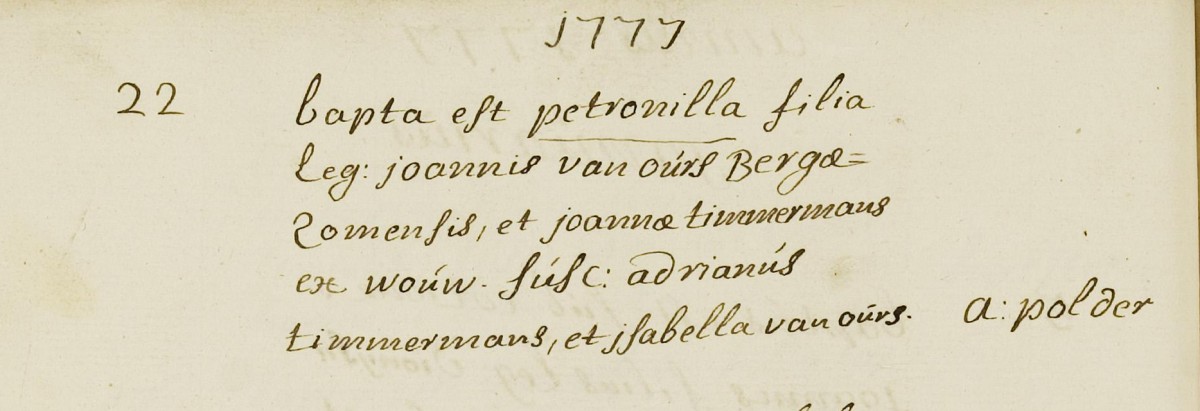 1777
22 bapta est petronilla filia
Leg: joannis van oúrs Bergæ=
Zomensis, et joannæ timmermans
ex woúw. súsc: adrianús
timmermans, et jsabella van oúrs. a: polder